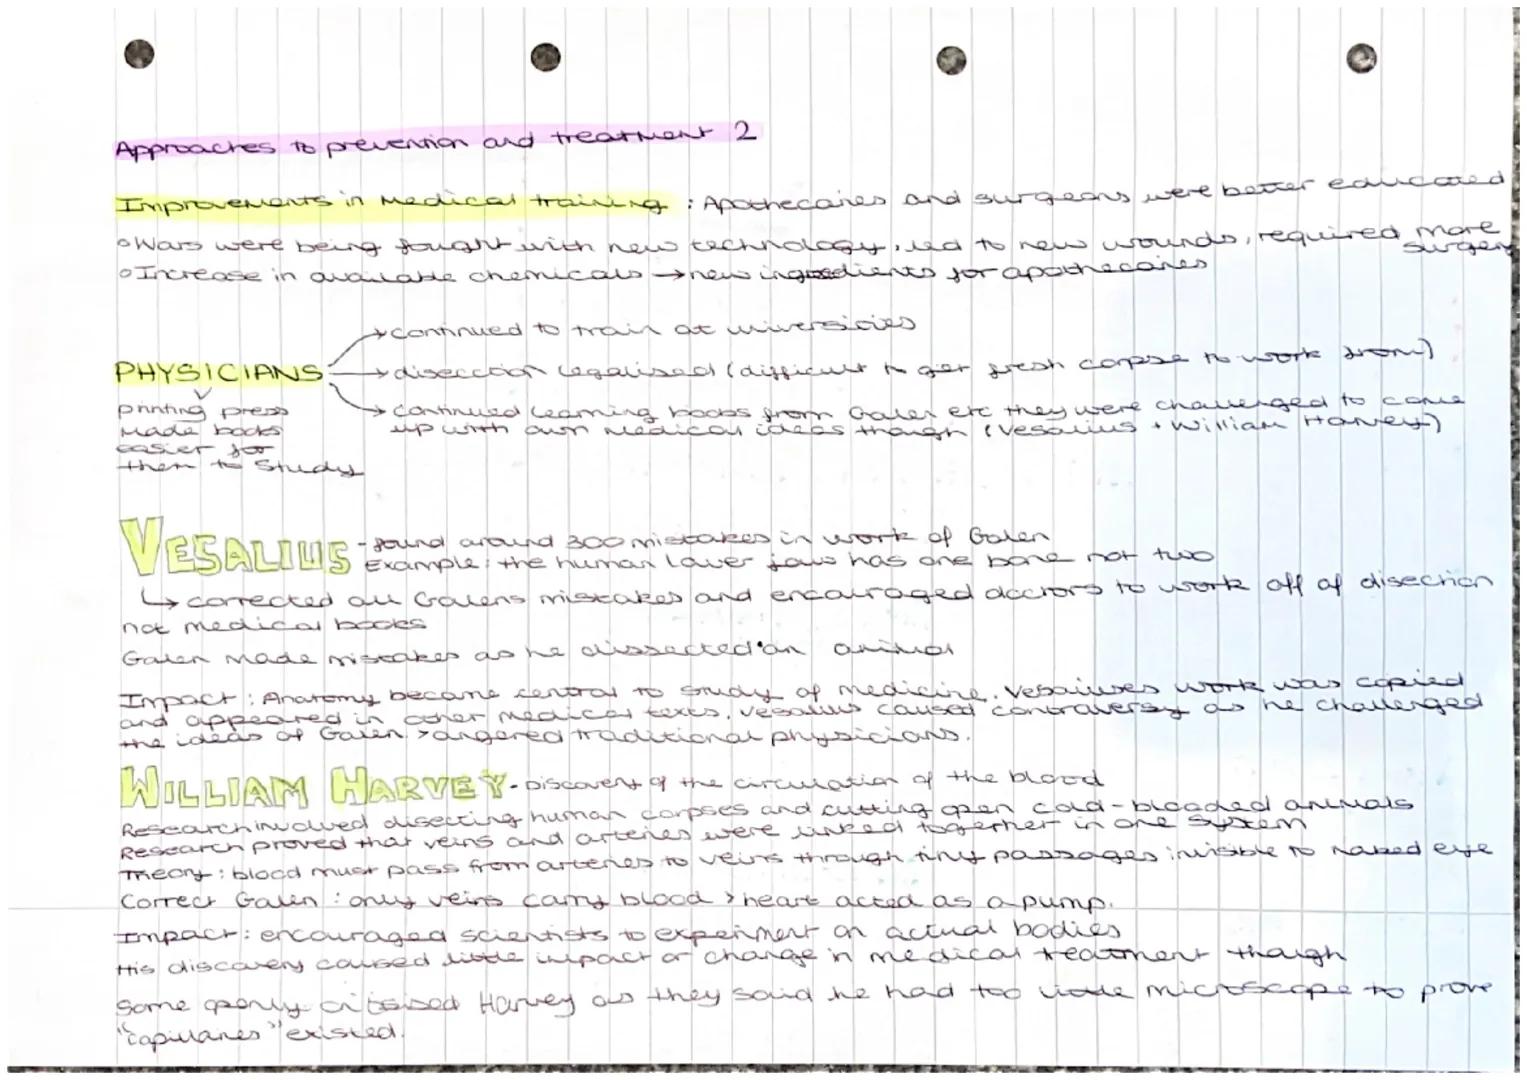 Approaches to prevention and treatment 2
Improvements in medical training : Apothecaries and surgeons were better educated
• Wars were being fought with new technology, led to new wounds, required more surgery
• Increase in available chemicals → new ingredients for apothecaries
→ continued to train at universities
PHYSICIANS → disecction legalised (difficult to get fresh corpse to work from)
→ continued learning books from Galen etc they were challenged to come
up with own medical ideas though (Vesalius + William Harvey)
printing press
made books
easier for
them to study
VESALIUS - found around 300 mistakes in work of Galen
Example: the human lower jaw has one bone not two
↳ corrected all Galens mistakes and encouraged doctors to work off of disection
not medical books
Galen made mistakes as he dissected an animal
Impact : Anatomy became central to study of medicine. Vesaliuses work was copied
and appeared in other medical texts. Vesalius caused controversy as he challenged
the ideas of Galen > angered traditional physicians.
WILLIAM HARVEY - Discovery of the circulation of the blood
Research involved disecting human corpses and cutting open cold-blooded animals
Research proved that veins and arteries were linked together in one system
Theory : blood must pass from arteries to veins through tiny passages invisible to naked eye
Correct Galen : only veins carry blood > heart acted as a pump.
Impact : encouraged scientists to experiment on actual bodies
His discovery caused little impact or change in medical treatment though
Some openly critisised Harvey as they said he had too little microscope to prove
"capillaries" existed.